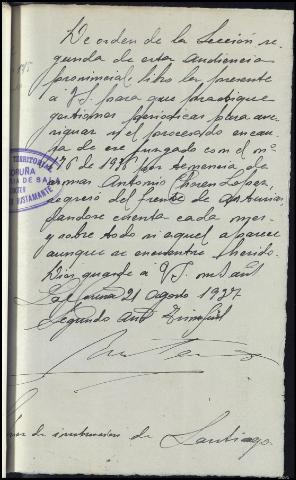 De orden de la Sección se
gunda de esta Audiencia
provincial, libro la presente
a V.S. para que practique
gestiones periódicas para ave
riguar si el procesado en cau
sa de ese Juzgado con el nº
176 de 1936 por tenencia de
armas Antonio López,
regresó del frente de Asturias,
dándose cuenta cada mes
y sobre todo si aquel aparece
aunque se encuentre herido.
Dios guarde a V.S. m. años
La Coruña 21 agosto 1937
Segundo Año Triunfal
de instrucción de Santiago
TERRITORIAL
CORUÑA
DE SALA
BUSTAMANTE